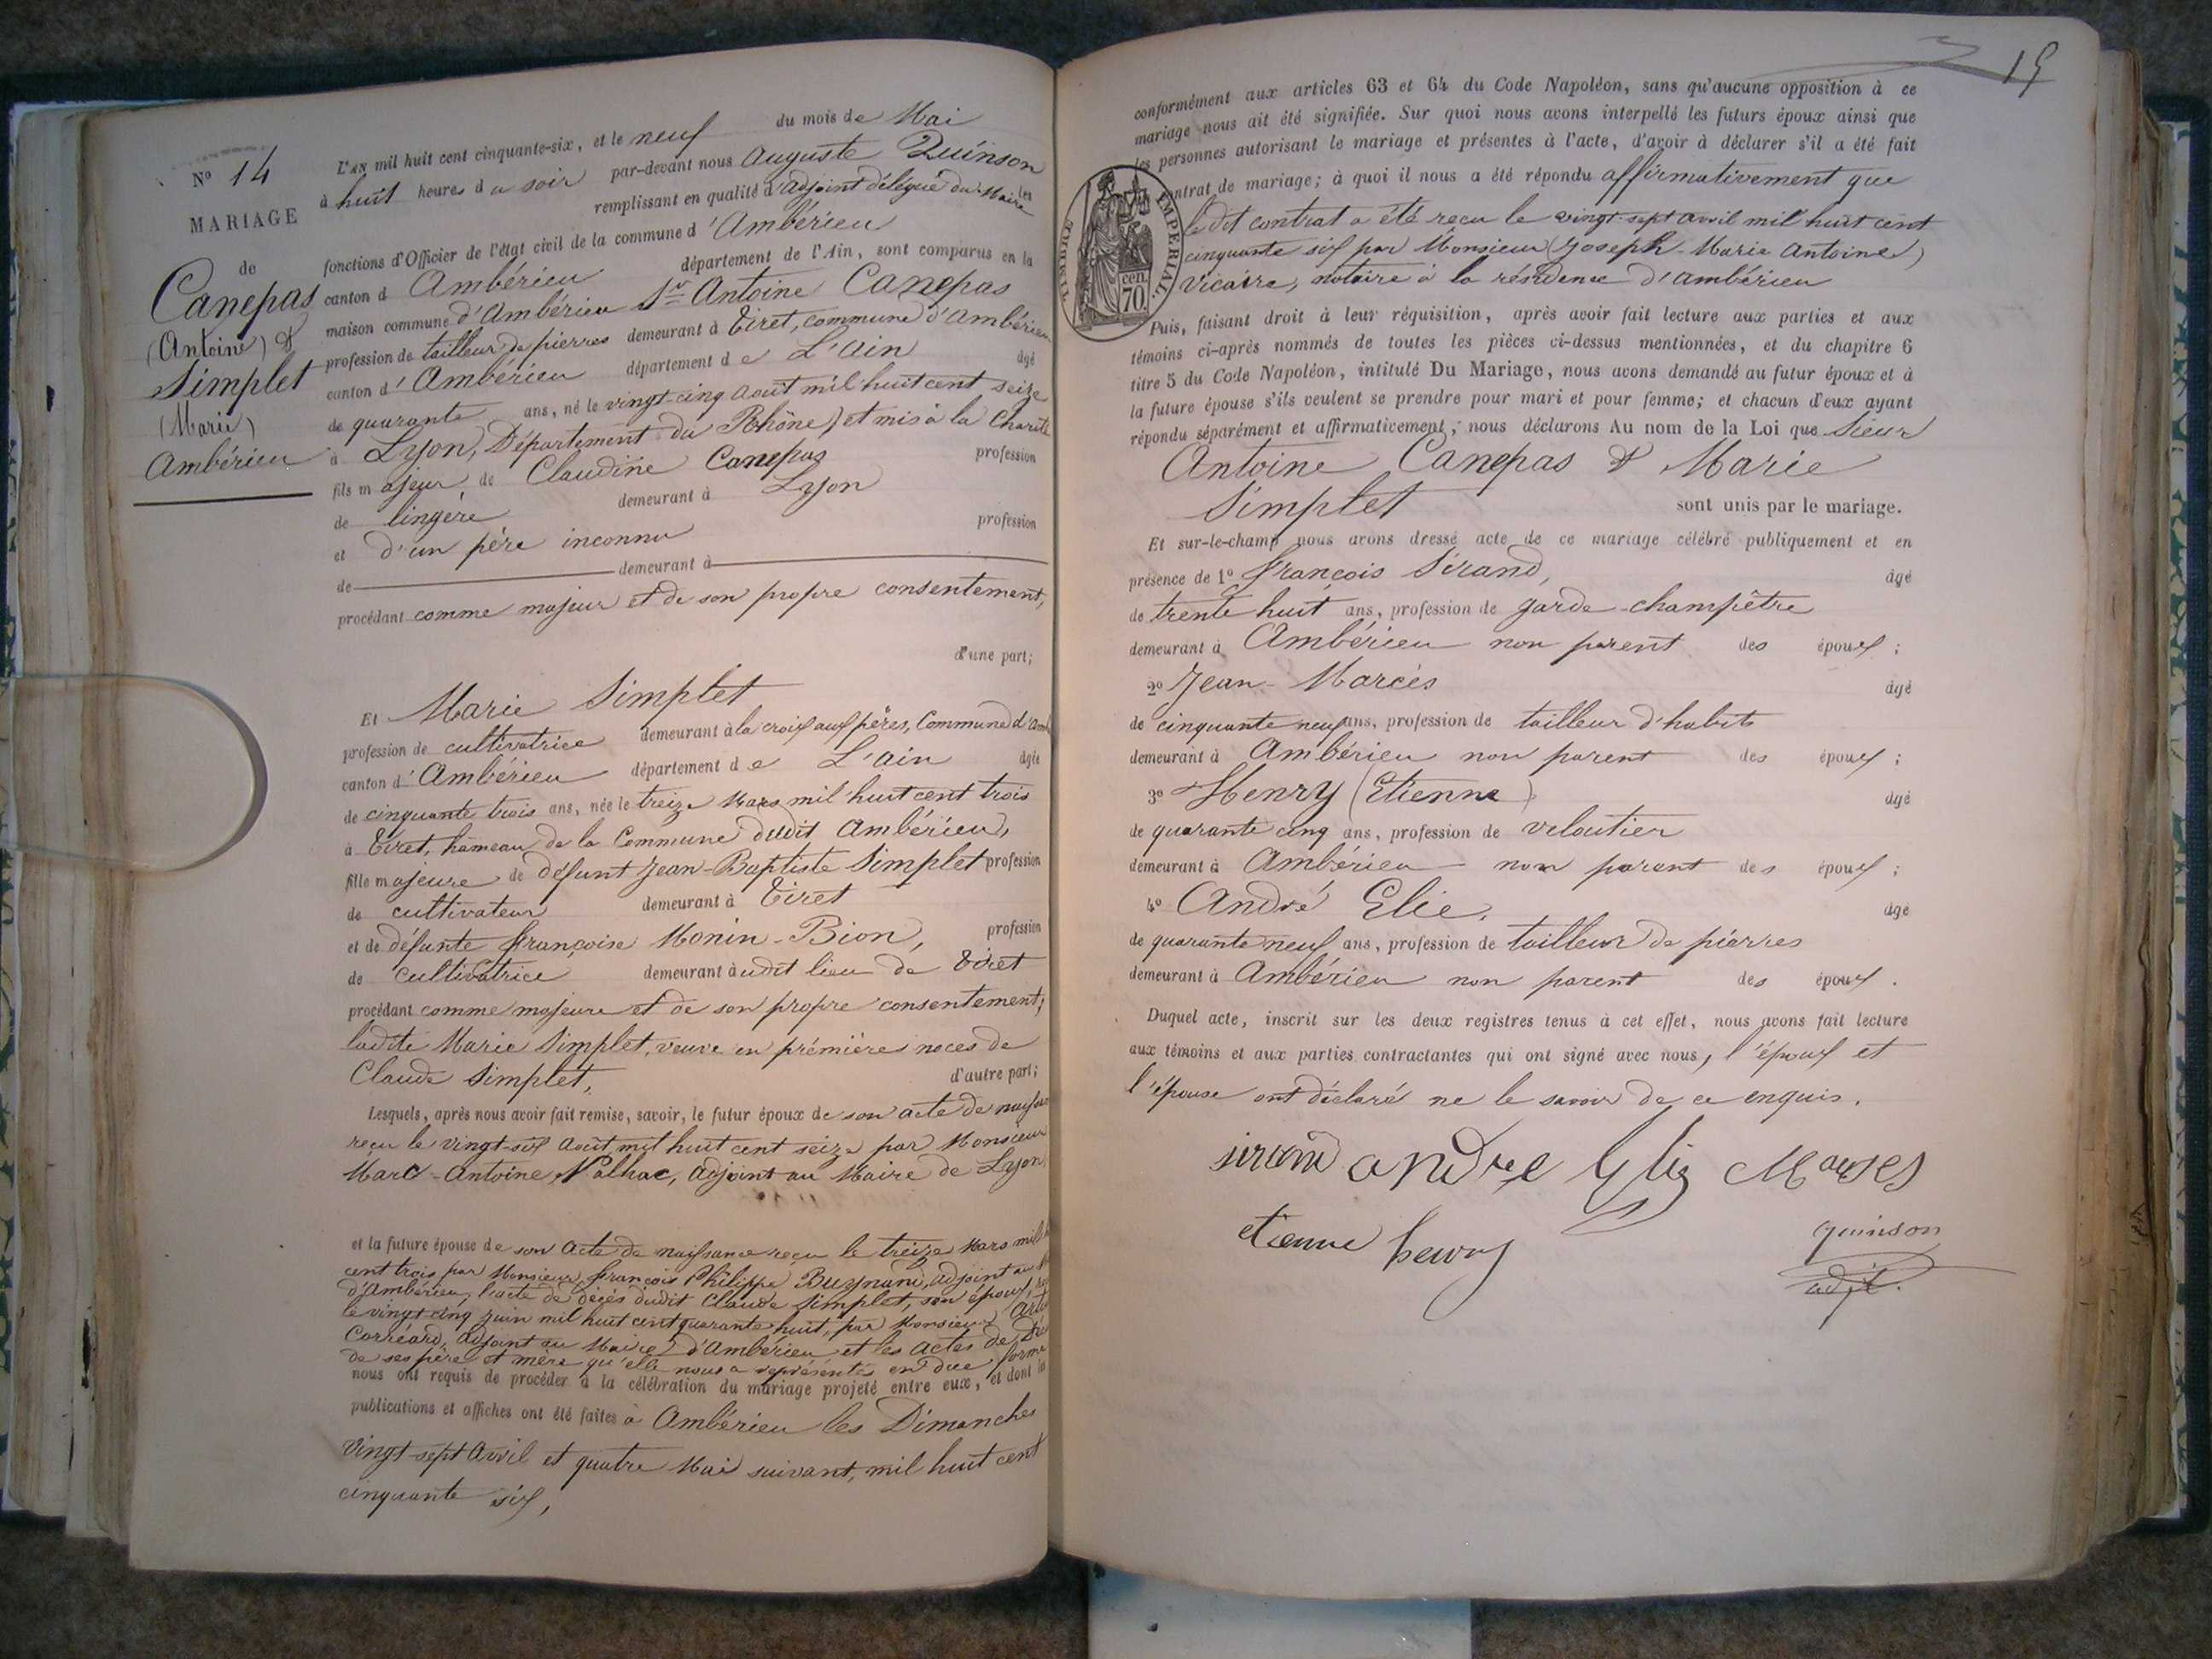 N° 14
MARIAGE
de
Canepas
(Antoine) &
Simplet
(Marie)
Ambérieu
L'AN mil huit cent cinquante-six, et le neuf du mois de Mai
à huit heures du soir par-devant nous Auguste Quinson
remplissant en qualité d'adjoint délégué du Maire les
fonctions d'Officier de l'état civil de la commune d'Ambérieu
canton d Ambérieu département de l'Ain, sont comparus en la
maison commune d'Ambérieu Sr Antoine Canepas
profession de tailleur de pierres demeurant à Tiret, commune d'Ambérieu
canton d'Ambérieu département de L'ain âgé
de quarante ans, né le vingt-cinq août mil huit cent seize
à Lyon, Département du Rhône, et mis à la Charité
fils majeur de Claudine Canepas profession
de lingère demeurant à Lyon
et d'un père inconnu profession
de demeurant à
procédant comme majeur et de son propre consentement,
d'une part;
Et Marie Simplet
profession de cultivatrice demeurant à la croix aux pères, Commune d'Amb
canton d'Ambérieu département de L'ain âgée
de cinquante trois ans, née le treize Mars mil huit cent trois
à Tiret, hameau de la Commune dudit Ambérieu,
fille majeure de défunt Jean-Baptiste Simplet profession
de cultivateur demeurant à Tiret
et de défunte françoise Monin-Bion, profession
de cultivatrice demeurant audit lieu de Tiret
procédant comme majeure et de son propre consentement;
ladite Marie Simplet, veuve en première noces de
Claude Simplet, d'autre part;
Lesquels, après nous avoir fait remise, savoir, le futur époux de son acte de
reçu le vingt-six Août mil huit cent seize par Monsieur
Marc-Antoine Nalhac, adjoint au Maire de Lyon
et la future épouse de son acte de naissance reçu le treize Mars mil
cent trois par Monsieur françois Philippe Buynand, adjoint au
d'Ambérieu, l'acte de décès dudit Claude Simplet, son époux,
le vingt-cinq juin mil huit cent quarante-huit, par Monsieur
Corréard, adjoint au Maire d'Ambérieu et les actes de
de ses père et mère qu'elle nous a représentés en due forme
nous ont requis de procéder à la célébration du mariage projeté entre eux, et dont les
publications et affiches ont été faites à Ambérieu les Dimanches
vingt-sept Avril et quatre Mai suivant, mil huit cent
cinquante six,
15
conformément aux articles 63 et 64 du Code Napoléon, sans qu'aucune opposition à ce
mariage nous ait été signifiée. Sur quoi nous avons interpellé les futurs époux ainsi que
les personnes autorisant le mariage et présentes à l'acte, d'avoir à déclarer s'il a été fait
contrat de mariage; à quoi il nous a été répondu affirmativement que
ledit contrat a été reçu le vingt-sept avril mil huit cent
cinquante six par Monsieur (Joseph-Marie Antoine)
Vicaire, notaire à la résidence d'Ambérieu
TIMBRE IMPÉRIAL
70 cen.
Puis, faisant droit à leur réquisition, après avoir fait lecture aux parties et aux
témoins ci-après nommés de toutes les pièces ci-dessus mentionnées, et du chapitre 6
titre 5 du Code Napoléon, intitulé Du Mariage, nous avons demandé au futur époux et à
la future épouse s'ils veulent se prendre pour mari et pour femme; et chacun d'eux ayant
répondu séparément et affirmativement, nous déclarons Au nom de la Loi que Sieur
Antoine Canepas & Marie
Simplet sont unis par le mariage.
Et sur-le-champ nous avons dressé acte de ce mariage célébré publiquement et en
présence de 1° françois Sirand, âgé
de trente huit ans, profession de garde-champêtre
demeurant à Ambérieu non parent des époux ;
2° Jean Marcès âgé
de cinquante neuf ans, profession de tailleur d'habits
demeurant à Ambérieu non parent des époux ;
3° Henry (Etienne) âgé
de quarante cinq ans, profession de veloutier
demeurant à Ambérieu non parent des époux ;
4° André Elie, âgé
de quarante neuf ans, profession de tailleur de pierres
demeurant à Ambérieu non parent des époux .
Duquel acte, inscrit sur les deux registres tenus à cet effet, nous avons fait lecture
aux témoins et aux parties contractantes qui ont signé avec nous, l'époux et
l'épouse ont déclaré ne le savoir de ce enquis.
sirand andre Elie Marses
etienne henry quinson
adjt.